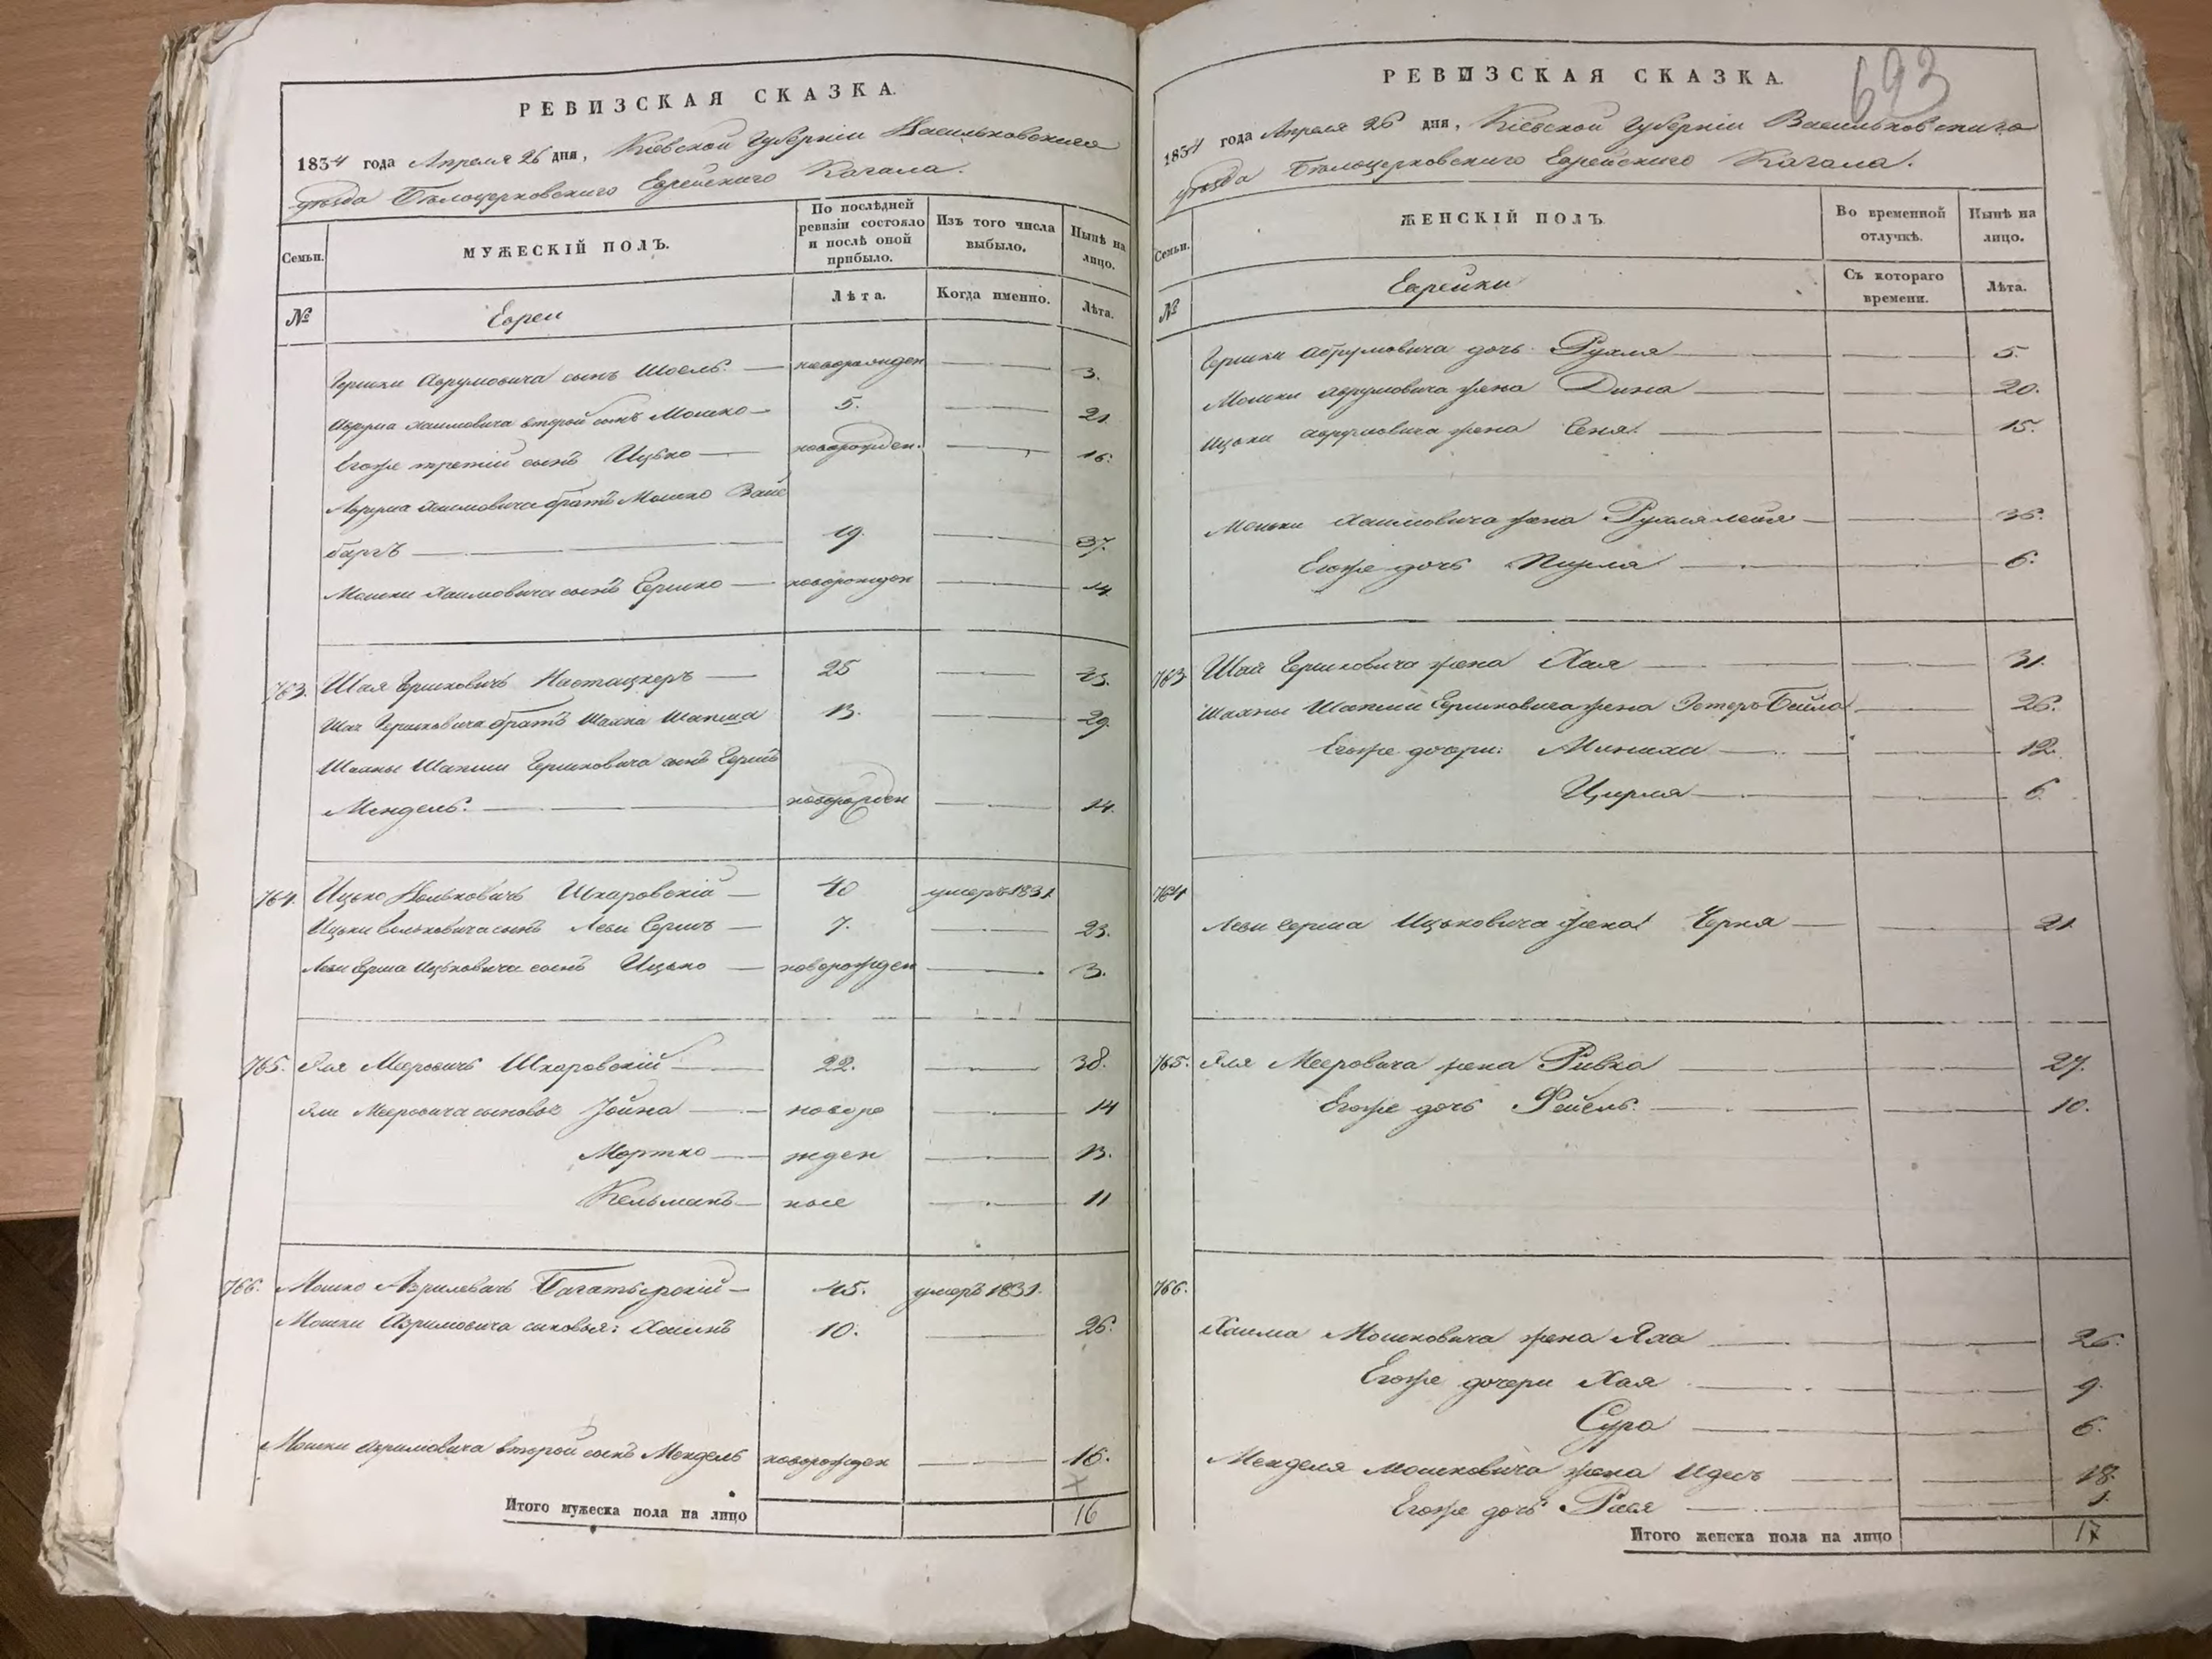 РЕВИЗСКАЯ СКАЗКА.
1834 года Апреля 26 дня, Кіевской Губерніи Васильковскаго
уѣзда Бѣлоцерковскаго Еврейскаго Кагала.
Семьи.
МУЖЕСКІЙ ПОЛЪ.
По послѣдней ревизіи состояло и послѣ оной прибыло.
Изъ того числа выбыло.
Нынѣ на лицо.
№
Евреи
Лѣта.
Когда именно.
Лѣта.
Гершки Аврумовича сынъ Шоель новорожден 3.
Аврума Хаимовича второй сынъ Мошко 5. 21
Егоже третій сынъ Ицько новорожден. 16.
Аврума Хаимовича братъ Мошко Вайс
баргъ 19. 37.
Мошки Хаимовича сынъ Гершко новорожден 14.
763. Шая Гершковичъ 25
Шаи Гершковича братъ Шахна Шапша 13. 29.
Шахны Шапши Гершковича сынъ Герш
Мендель. новорожден 14.
764. Ицько Вольковичъ Шкаровскій 40 умеръ 1831
Ицьки Вольковича сынъ Леви Гершъ 7. 23.
Леви Герша Ицьковича сынъ Ицько новорожден 3.
765. Эля Мееровичъ Шкаровскій 22. 38.
Эли Мееровича сыновья Іойна новоро 14
Мортко жден 13.
Кельманъ ные 11
766. Мошко Азрилевичъ Багатырскій 45. умеръ 1831.
Мошки Азрилевича сыновья: Хаимъ 10. 26.
Мошки Азрилевича второй сынъ Мендель новорожден 16.
Итого мужеска пола на лицо 16
693
РЕВИЗСКАЯ СКАЗКА.
1834 года Апреля 26 дня, Кіевской Губерніи Васильковскаго
уѣзда Бѣлоцерковскаго Еврейскаго Кагала.
Семьи.
ЖЕНСКІЙ ПОЛЪ.
Во временной отлучкѣ.
Нынѣ на лицо.
№
Еврейки
Съ котораго времени.
Лѣта.
Гершки Аврумовича дочь Рухля 5.
Мошки Аврумовича жена Дина 20.
Ицьки Аврумовича жена Сеня 15.
Мошки Хаимовича жена Рухля лейя 35.
Егоже дочь Пирля 6.
763 Шаи Гершковича жена Хая 31.
Шахны Шапши Гершковича жена Эстеръ Бейла 26.
Егоже дочери: Миниха 12.
Цирля 6
764
Леви Герша Ицьковича жена Черня 21
765. Эля Мееровича жена Ривка 27.
Егоже дочь Рейель. 10.
766.
Хаима Мошковича жена Яха 26.
Егоже дочери Хая 9.
Сура 6.
Менделя Мошковича жена Идесъ 18.
Егоже дочь Рися 1.
Итого женска пола на лицо 17